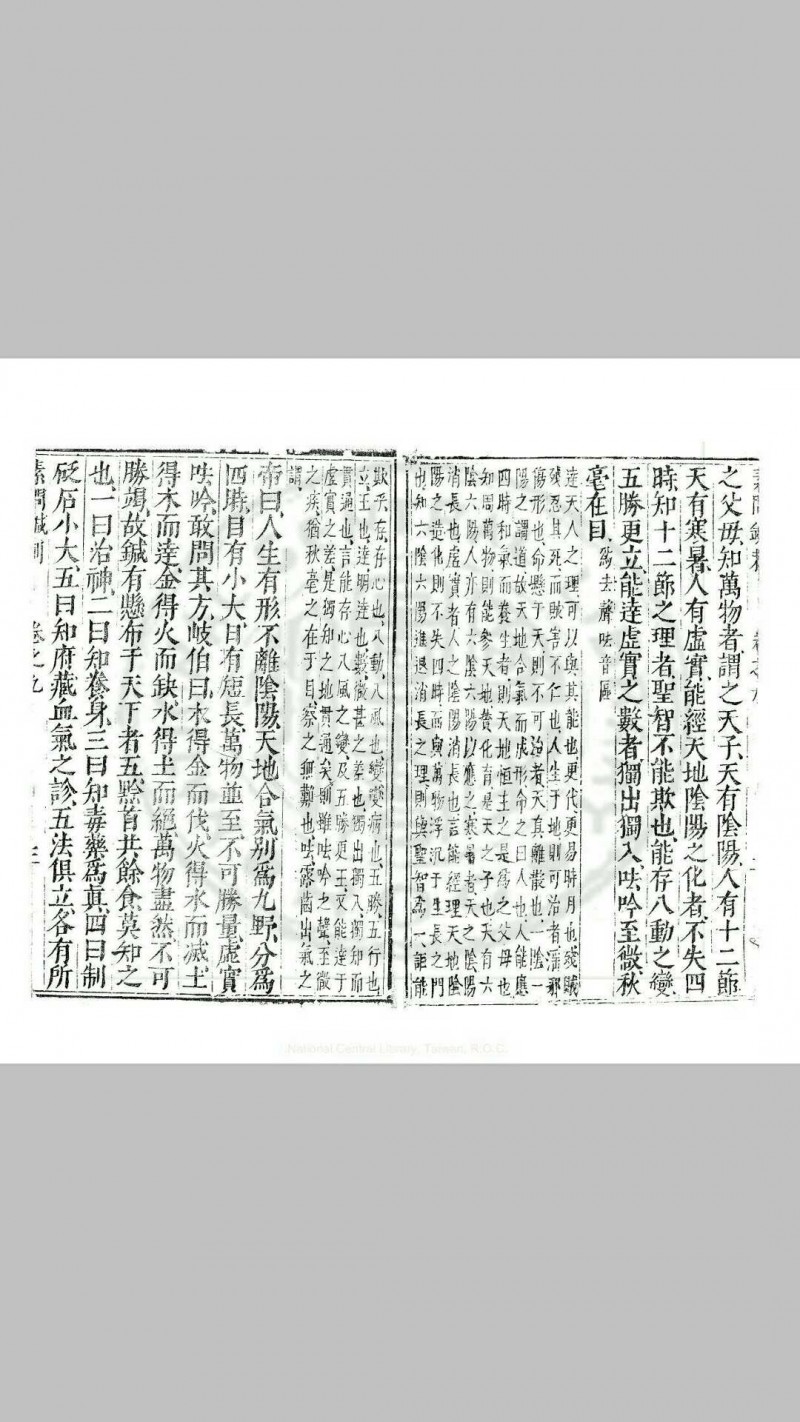 之父母知萬物者謂之天子天有陰陽人有十二節
天有寒暑人有虛實能經天地陰陽之化者不失四
時知十二節之理者聖智不能欺也能存八動之變
五勝更立能達虛實之數者獨出獨入呿吟至微秋
毫在目 為去聲呿音區
達天人之理可以與其能也更代更易時月也殘賊
殘忍其死而賊害不仁也人生于地則可治者滛邪
傷形也命懸于天則不可治者天真離散也一陰一
陽之謂道故天地合氣而成形命之曰人也人能應
四時和氣而養生者則天地恒主之是為之父母也
知周萬物則能參天地賛化育是天之子也天有六
陰六陽人亦有六陰六陽以應之寒暑者天之陰陽
消長也虛實者人之陰陽消長也言能經理天地陰
陽之造化則不失四時而與萬物浮沉于生長之門
也知六陰六陽進退消長之理則與聖智為一詎能
欺乎存存心也八動八風也變變病也五勝五行也
立王也達明達也數微甚之差也獨出獨入獨知而
貫通也言能存心八風之變及五勝更王又能達于
虛實之差是獨知之地貫通矣則雖呿吟之聲至微
之疾猶秋毫之在于目察之無難也呿露齒出氣之
謂
帝曰人生有形不離陰陽天地合氣別為九野分為
四時月有小大日有短長萬物並至不可勝量虛實
呿吟敢問其方岐伯曰木得金而伐火得水而滅土
得木而達金得火而缺水得土而絕萬物盡然不可
勝竭故鍼有懸布于天下者五黔首共餘食莫知之
也一曰治神二曰知養身三曰知毒藥為真四曰制
砭石小大五曰知府藏血氣之診五法俱立各有所
素問鍼 卷之九
National Central Library, Taiwan, R.O.C.